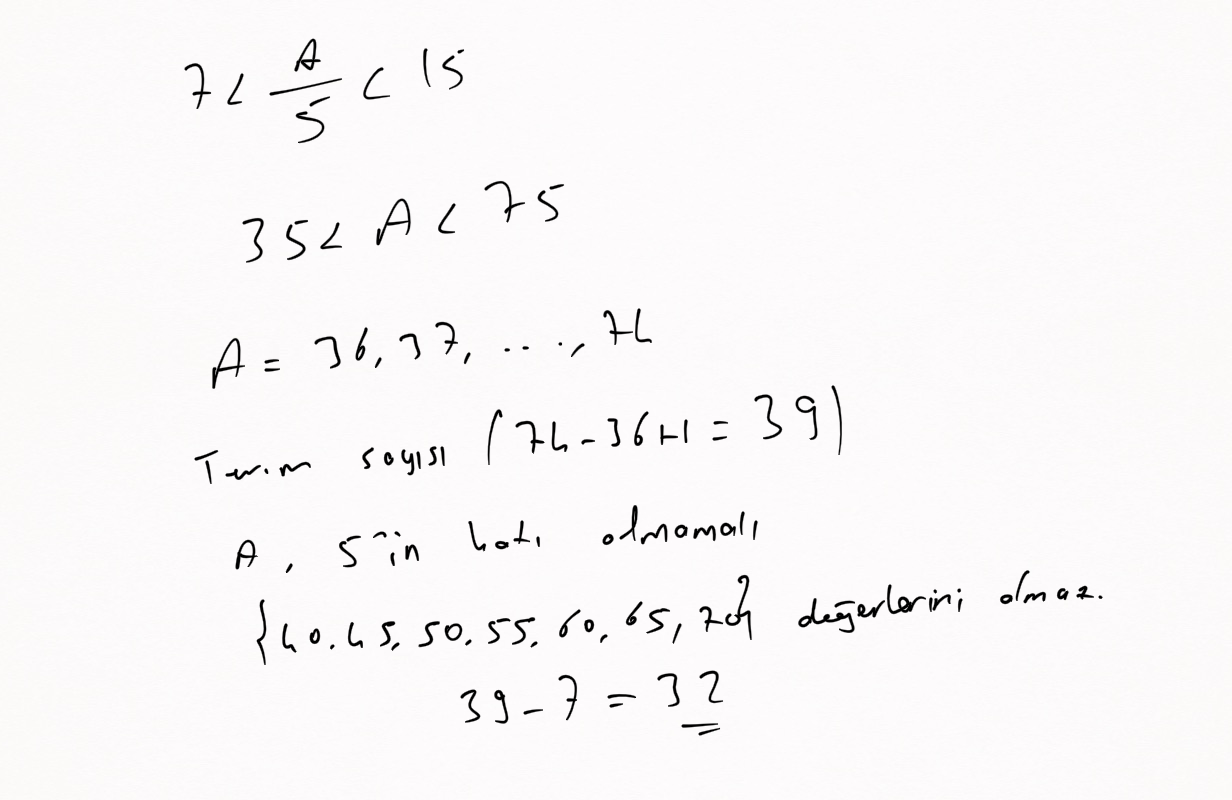 7 < A/5 < 15
35 < A < 75
A = 36, 37, ..., 74
Terim sayısı (74 - 36 + 1 = 39)
A, 5'in katı olmamalı
{40, 45, 50, 55, 60, 65, 70} değerlerini olmaz.
39 - 7 = 32